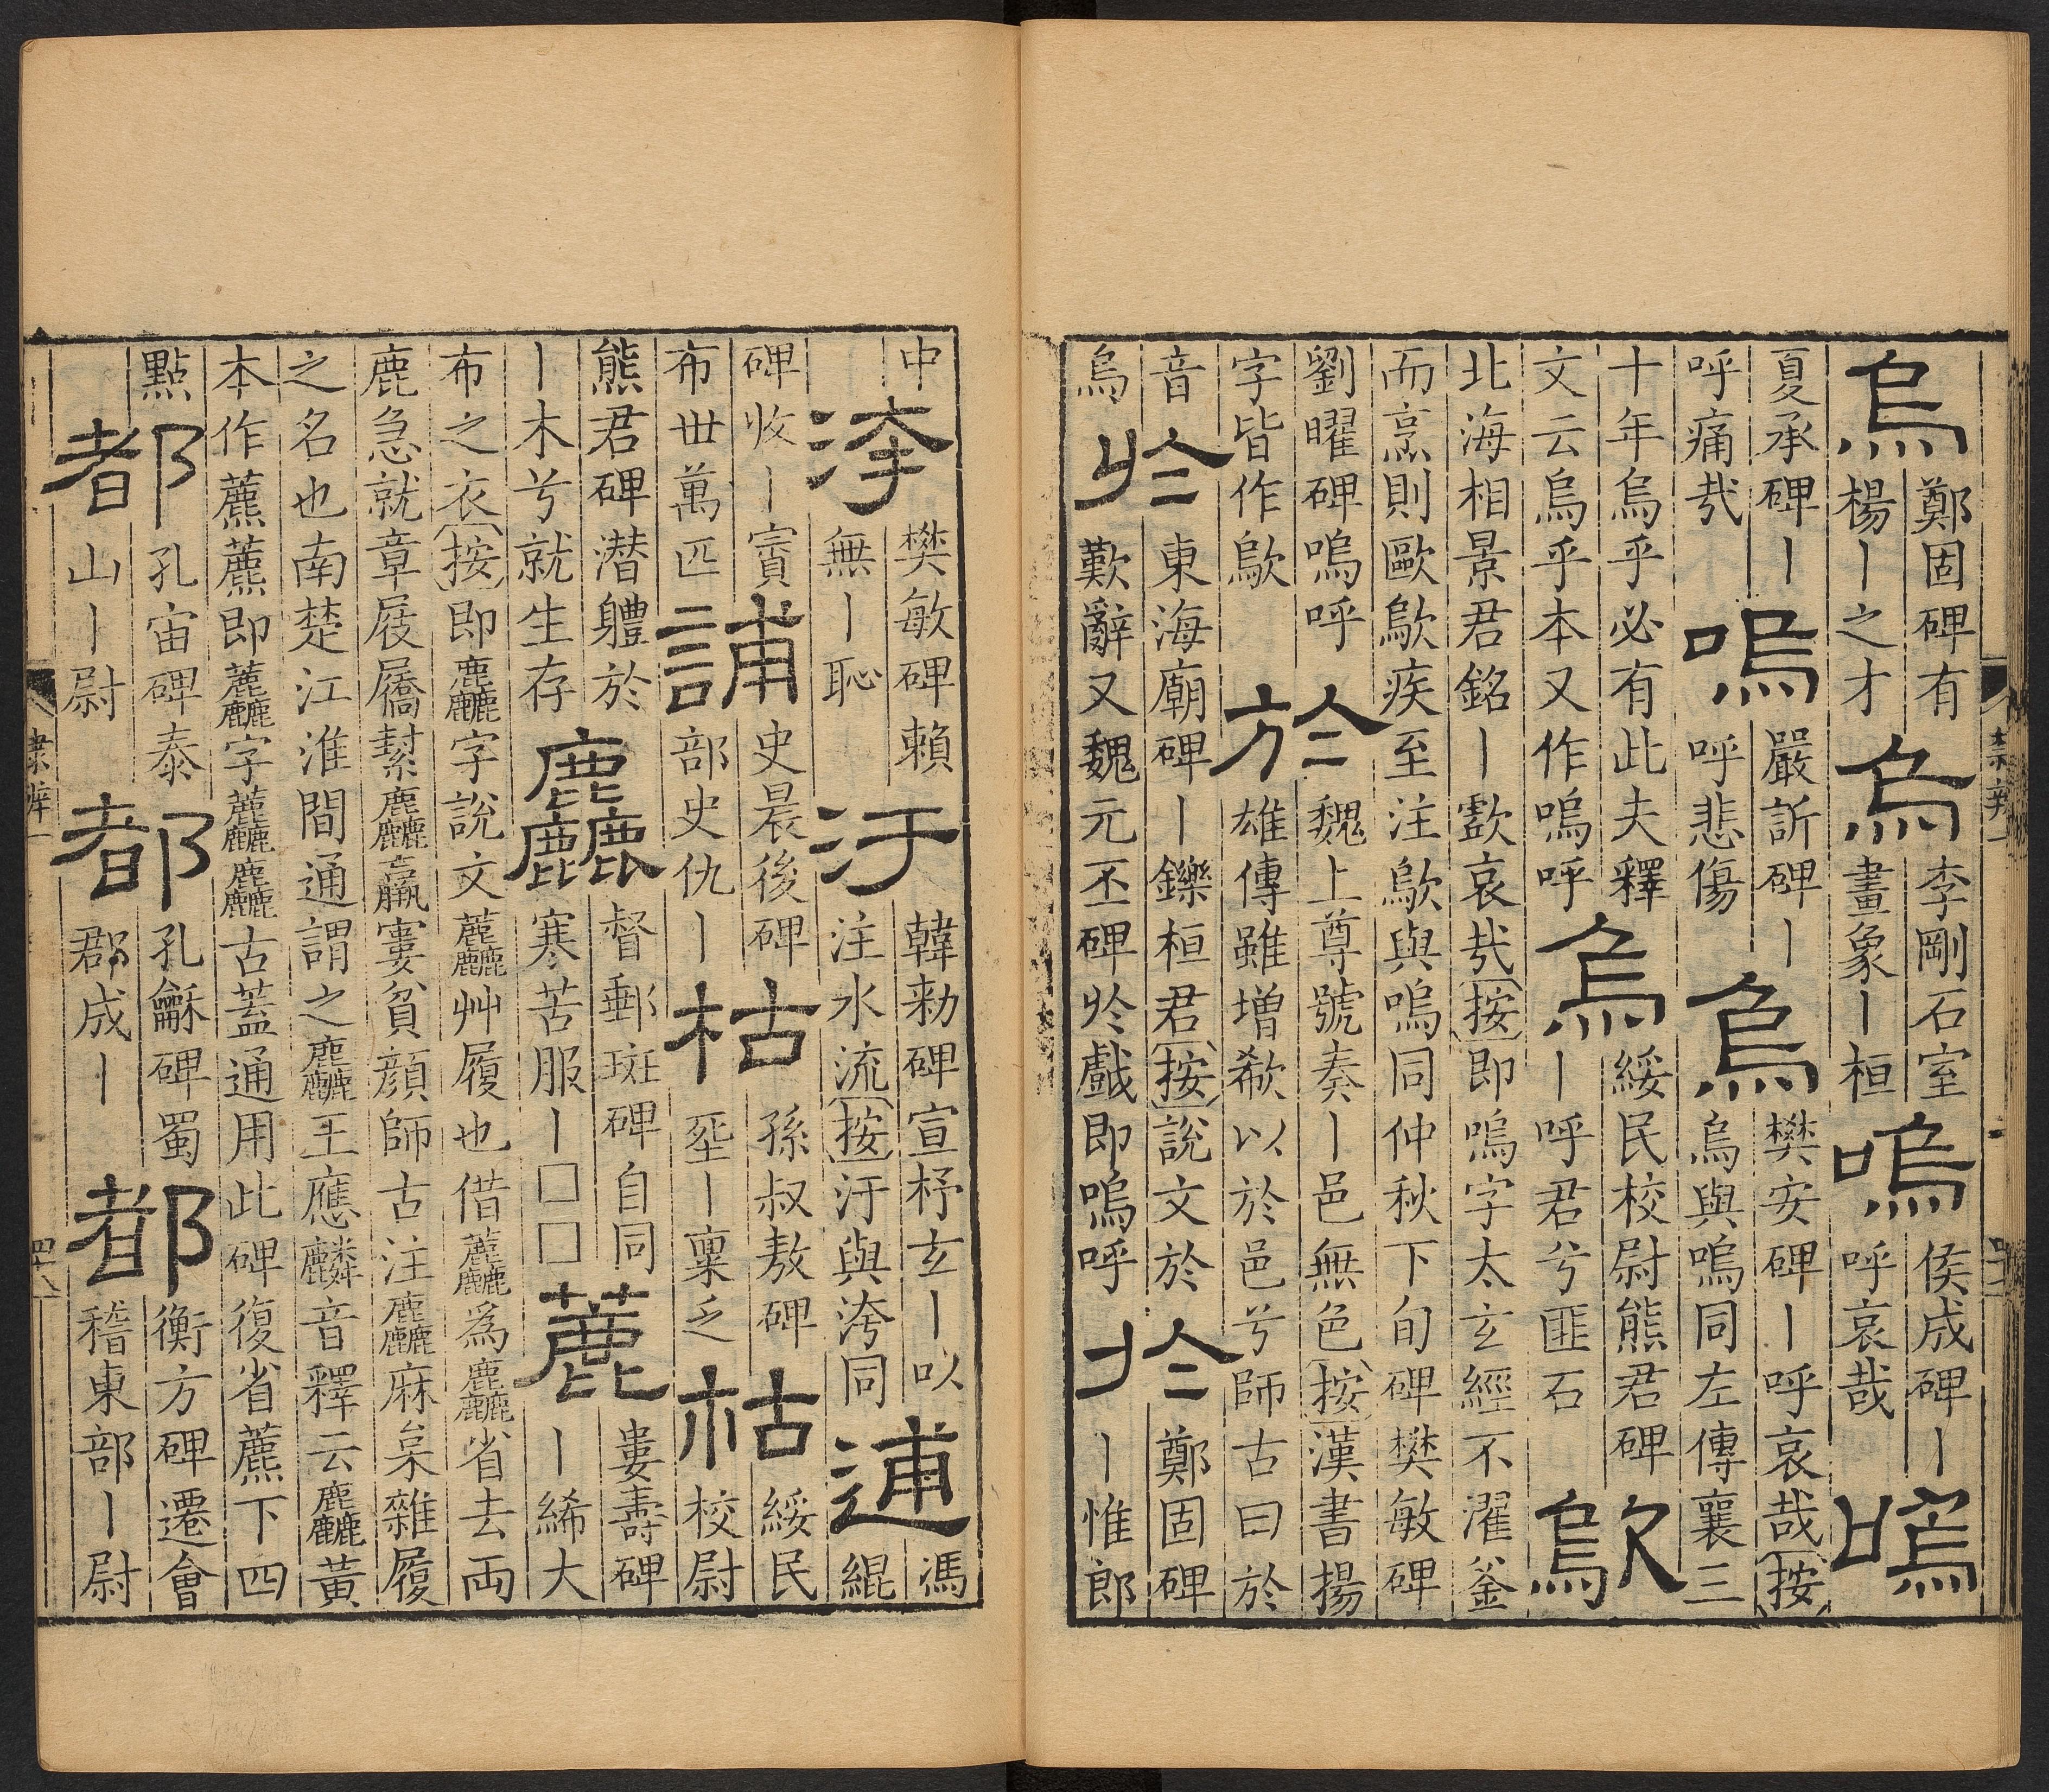 烏 鄭固碑有
楊丨之才
烏 李剛石室
畫象丨桓
嗚 侯成碑丨
呼哀哉
嗚
夏承碑丨
呼痛㢤
嗚 嚴訢碑丨
呼悲傷
烏 樊安碑丨呼哀哉按
烏與嗚同左傳襄三
十年烏乎必有此夫釋
文云烏乎本又作嗚呼
烏 綏民校尉熊君碑
丨呼君兮匪石
歍
北海相景君銘丨歔哀㢤按即嗚字太玄經不濯釜
而烹則歐歍疾至注歍與嗚同仲秋下旬碑樊敏碑
劉曜碑嗚呼
字皆作歍
於 魏上尊號奏丨邑無色按漢書揚
雄傳雖增欷以於邑兮師古曰於
音
烏
於 東海廟碑丨鑠桓君按說文於
歎辭又魏元丕碑於戲即嗚呼
於 鄭固碑
丨惟郎
中
洿 樊敏碑賴
無丨恥
汙 韓勑碑宣杼玄丨以
注水流按汙與洿同
逋 馮
緄
碑收丨賓
布丗萬匹
誧 史晨後碑
部史仇丨
枯 孫叔敖碑
埊丨稟乏
枯 綏民
校尉
熊君碑潛軆於
丨木兮就生存
麤 督郵斑碑自同
寒苦服丨□□
蔍 婁壽碑
丨絺大
布之衣按即麤字說文䕳艸履也借䕳為麤省去両
鹿急就章屐屩絜麤羸窶貧顏師古注麤麻枲雜履
之名也南楚江淮間通謂之麤王應麟音釋云麤黃
本作藨藨即䕳字䕳麤古蓋通用此碑復省藨下四
點
都 孔宙碑泰
山丨尉
都 孔龢碑蜀
郡成丨
都 衡方碑遷會
稽東部丨尉
隸辨一
四十八